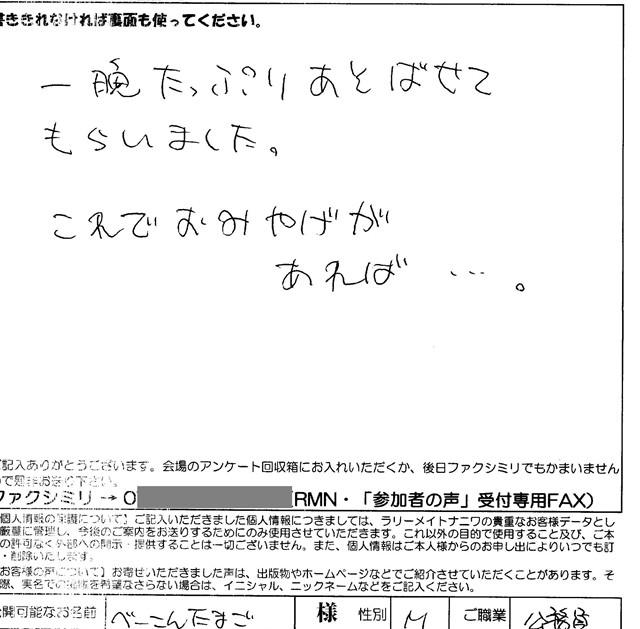 書ききれなければ裏面も使ってください。
一晩たっぷりあそばせて
もらいました。
これでおみやげが
あれば …。
ご記入ありがとうございます。会場のアンケート回収箱にお入れいただくか、後日ファクシミリでもかまいません
ので是非お送り下さい。
ファクシミリ→0 (RMN・「参加者の声」受付専用FAX)
個人情報の保護について】ご記入いただきました個人情報につきましては、ラリーメイトナニワの貴重なお客様データとし
厳重に管理し、今後のご案内をお送りするためにのみ使用させていただきます。これ以外の目的で使用すること及び、ご本
の許可なく外部への開示・提供することは一切ございません。また、個人情報はご本人様からのお申し出によりいつでも訂
・削除いたします。
お客様の声について】お寄せいただきました声は、出版物やホームページなどでご紹介させていただくことがあります。そ
際、実名での掲載を希望なさらない場合は、イニシャル、ニックネームなどをご記入ください。
公開可能なお名前 べーこんたまご 様 性別 M ご職業 公務員